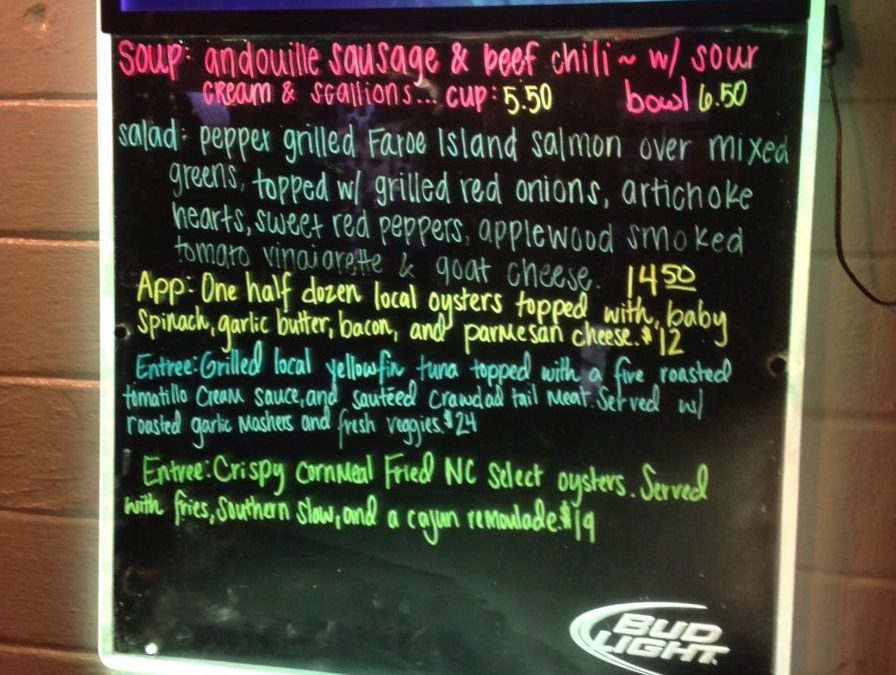 Soup: andouille sausage & beef chili ~ w/ sour
cream & scallions... cup: 5.50 bowl 6.50
salad: pepper grilled Faroe Island salmon over mixed
greens, topped w/ grilled red onions, artichoke
hearts, sweet red peppers, applewood smoked
tomato vinaiarette & goat cheese. 14 50
App: One half dozen local oysters topped with, baby
Spinach, garlic butter, bacon, and parmesan cheese. $12
Entree: Grilled local yellowfin tuna topped with a fire roasted
tomatillo cream sauce, and sautéed crawdad tail meat. Served w/
roasted garlic mashers and fresh veggies. $24
Entree: Crispy cornmeal Fried NC Select oysters. Served
with fries, Southern slaw, and a cajun remoulade. $19
BUD
LIGHT